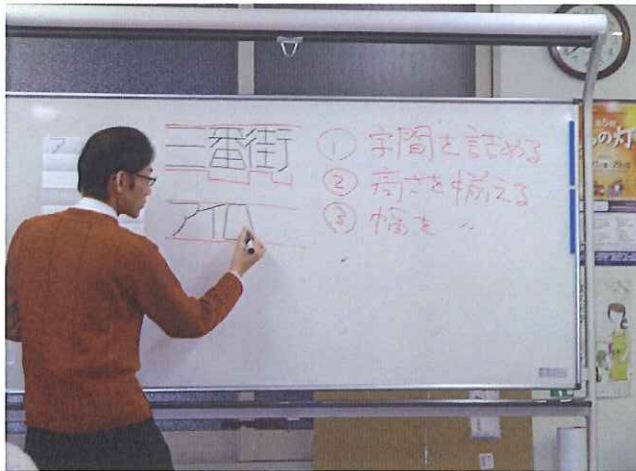 三番街
① 字間を詰める
② 高さを揃える
③ 幅を 〃
ア